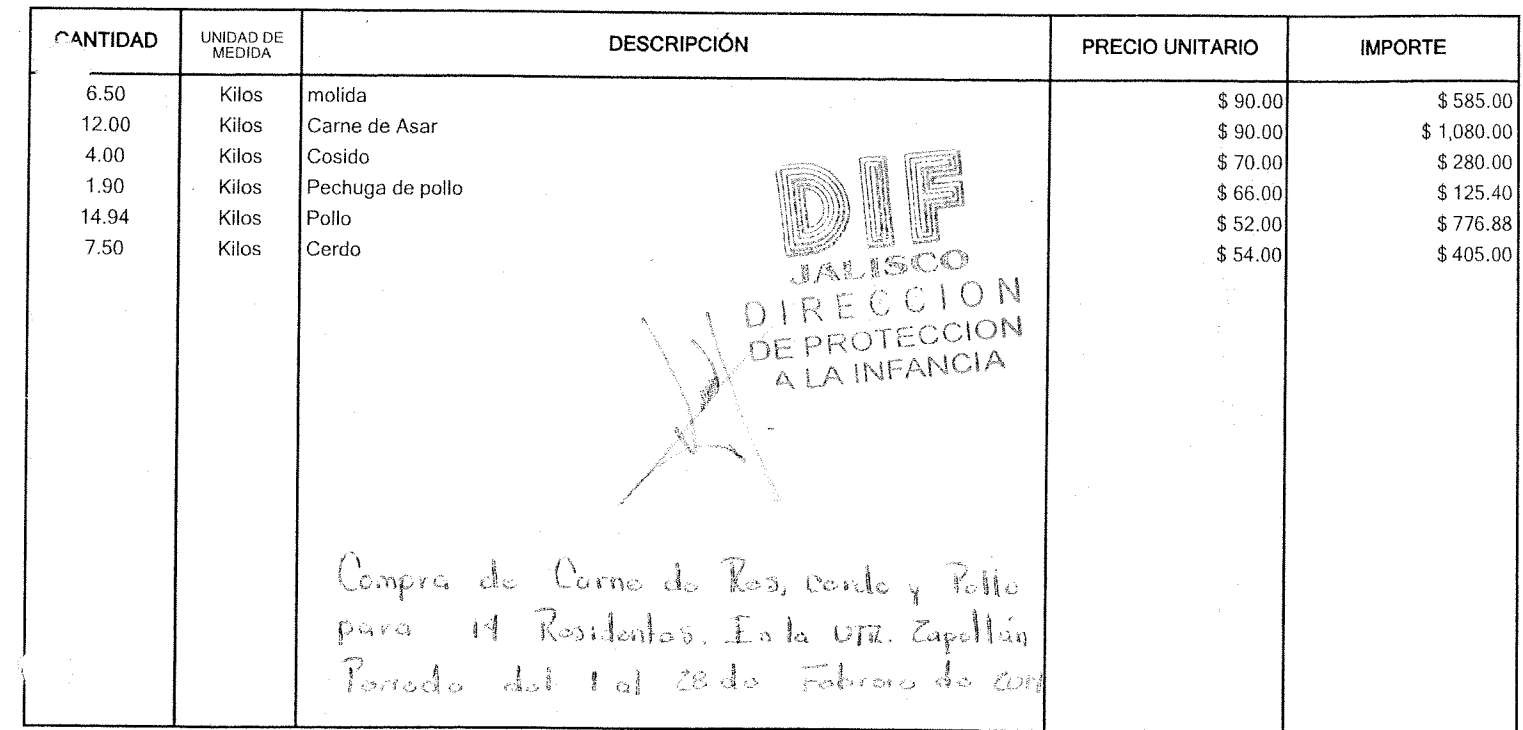 CANTIDAD UNIDAD DE MEDIDA DESCRIPCIÓN PRECIO UNITARIO IMPORTE
6.50 Kilos molida $ 90.00 $ 585.00
12.00 Kilos Carne de Asar $ 90.00 $ 1,080.00
4.00 Kilos Cosido $ 70.00 $ 280.00
1.90 Kilos Pechuga de pollo $ 66.00 $ 125.40
14.94 Kilos Pollo $ 52.00 $ 776.88
7.50 Kilos Cerdo $ 54.00 $ 405.00
DIF
JALISCO
DIRECCION
DE PROTECCION
A LA INFANCIA
Compra de Carne de Res, cerdo y Pollo
para Residentes. En la Zapotlán
Periodo del 1 al 28 de Febrero de 2014